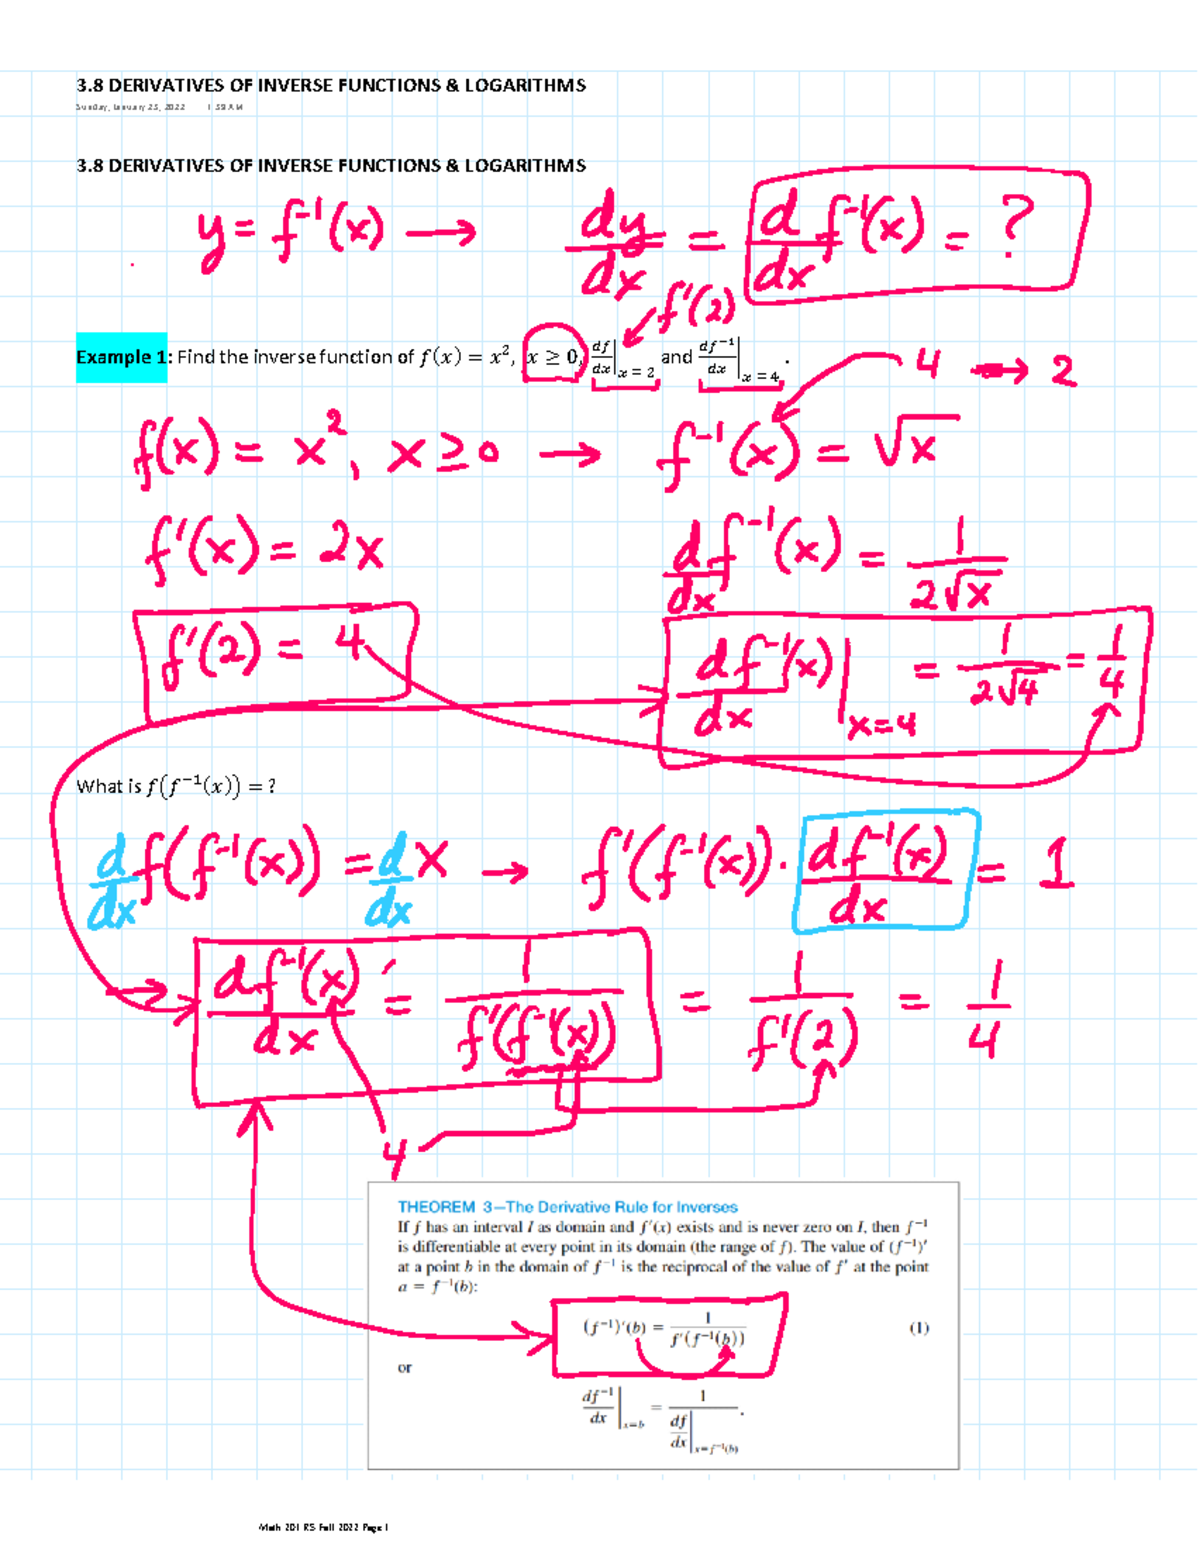 3.8 DERIVATIVES OF INVERSE FUNCTIONS & LOGARITHMS
Sunday, January 23, 2022 1:38 AM
3.8 DERIVATIVES OF INVERSE FUNCTIONS & LOGARITHMS
y = f⁻¹(x) → dy/dx = d/dx f⁻¹(x) = ?
f'(2)
Example 1: Find the inverse function of f(x) = x², x ≥ 0, df/dx|x = 2 and df⁻¹/dx|x = 4.
4 → 2
f(x) = x², x ≥ 0 → f⁻¹(x) = √x
f'(x) = 2x d/dx f⁻¹(x) = 1/(2√x)
f'(2) = 4 df⁻¹(x)/dx|x=4 = 1/(2√4) = 1/4
What is f(f⁻¹(x)) = ?
d/dx f(f⁻¹(x)) = d/dx x → f'(f⁻¹(x)) · df⁻¹(x)/dx = 1
df⁻¹(x)/dx = 1/f'(f⁻¹(x)) = 1/f'(2) = 1/4
4
THEOREM 3—The Derivative Rule for Inverses
If f has an interval I as domain and f'(x) exists and is never zero on I, then f⁻¹
is differentiable at every point in its domain (the range of f). The value of (f⁻¹)'
at a point b in the domain of f⁻¹ is the reciprocal of the value of f' at the point
a = f⁻¹(b):
(f⁻¹)'(b) = 1/f'(f⁻¹(b)) (1)
or
df⁻¹/dx|x=b = 1/(df/dx|x=f⁻¹(b)).
Math 201 RS Fall 2022 Page 1